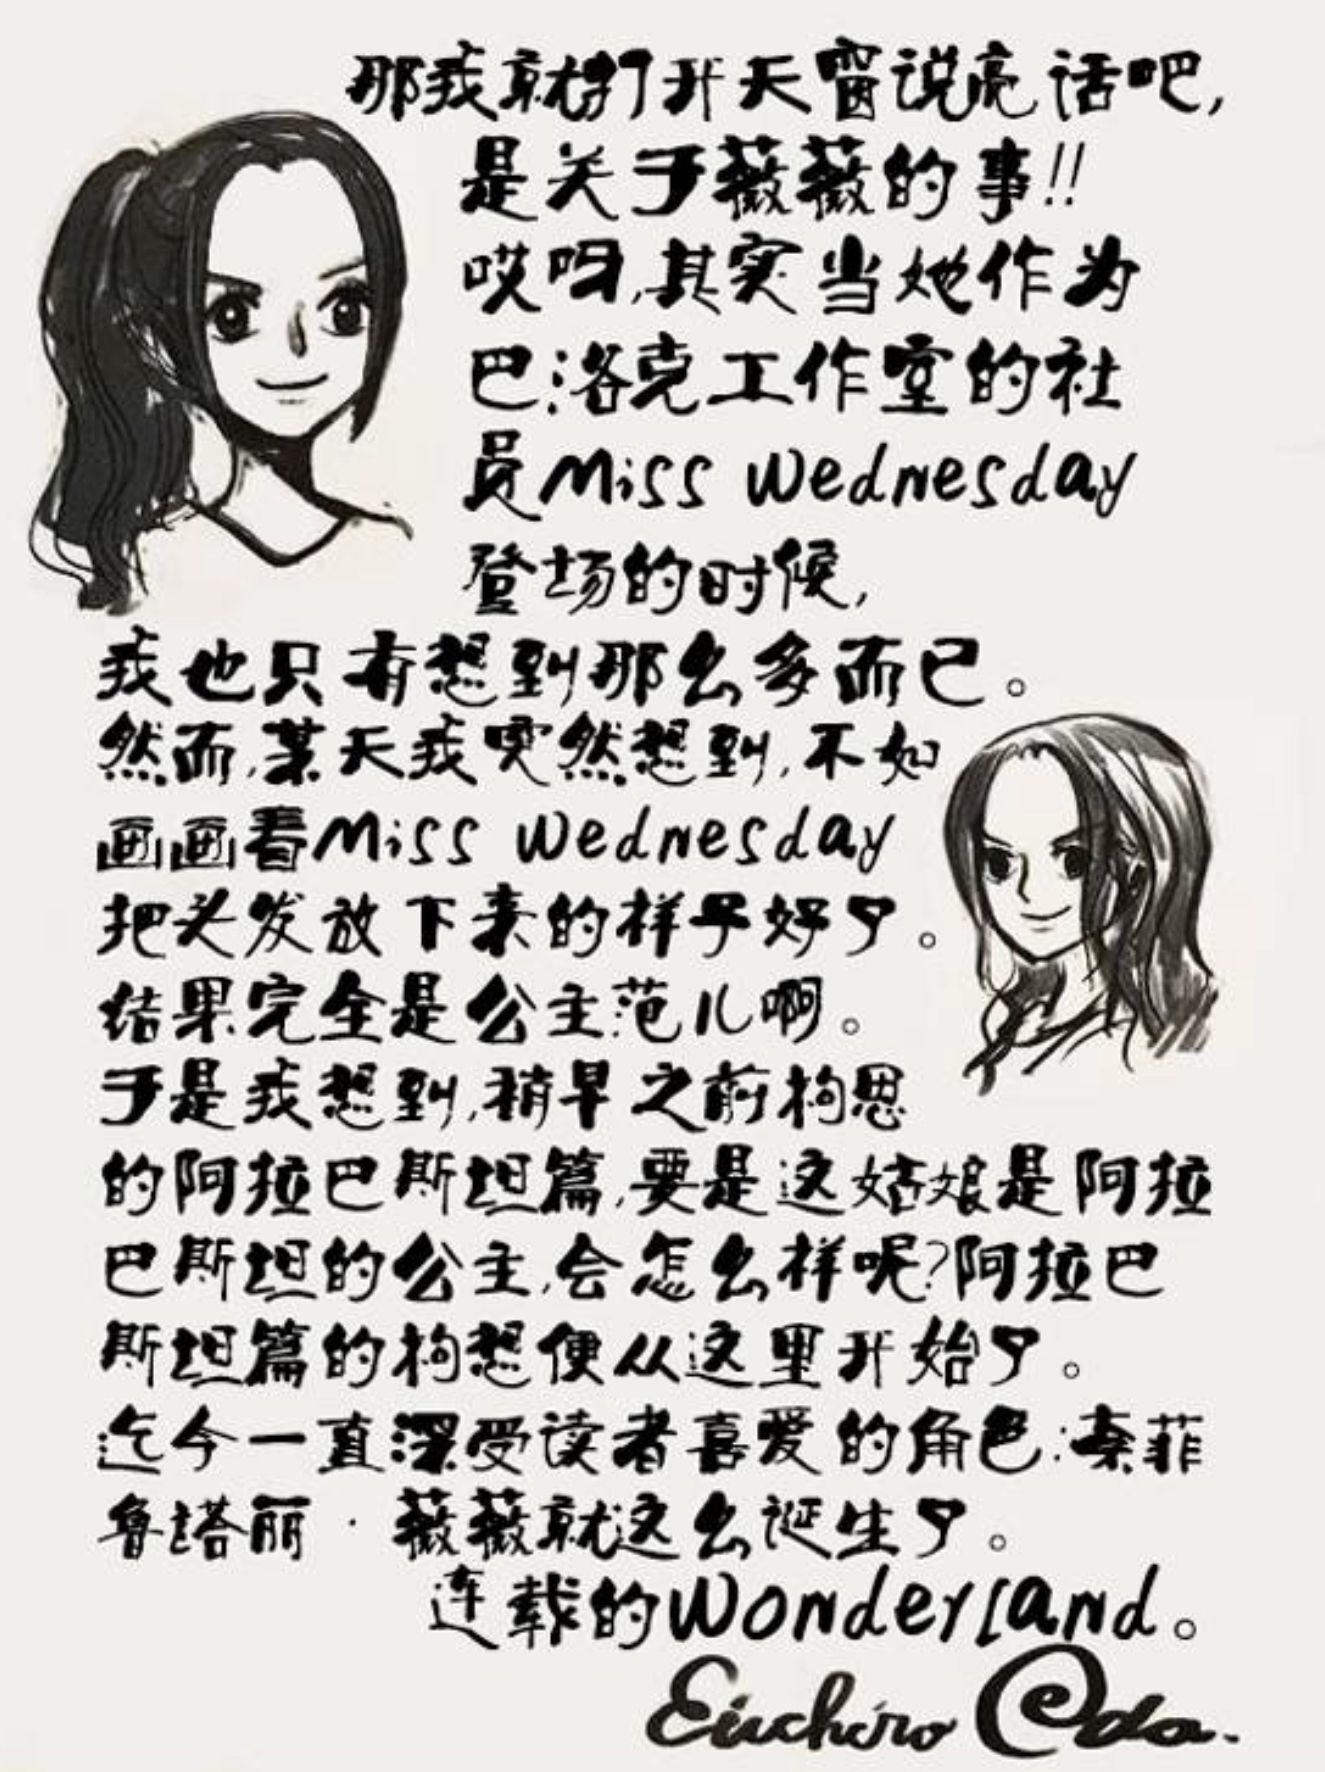 那我就打开天窗说亮话吧，
是关于薇薇的事!!
哎呀，其实当她作为
巴洛克工作室的社
员Miss Wednesday
登场的时候，
我也只有想到那么多而已。
然而，某天我突然想到，不如
画画看Miss Wednesday
把头发放下来的样子好了。
结果完全是公主范儿啊。
于是我想到，稍早之前构思
的阿拉巴斯坦篇，要是这姑娘是阿拉
巴斯坦的公主，会怎么样呢？阿拉巴
斯坦篇的构想便从这里开始了。
迄今一直深受读者喜爱的角色：奈菲
鲁塔丽·薇薇就这么诞生了。
连载的Wonderland。
Eiichiro Oda.